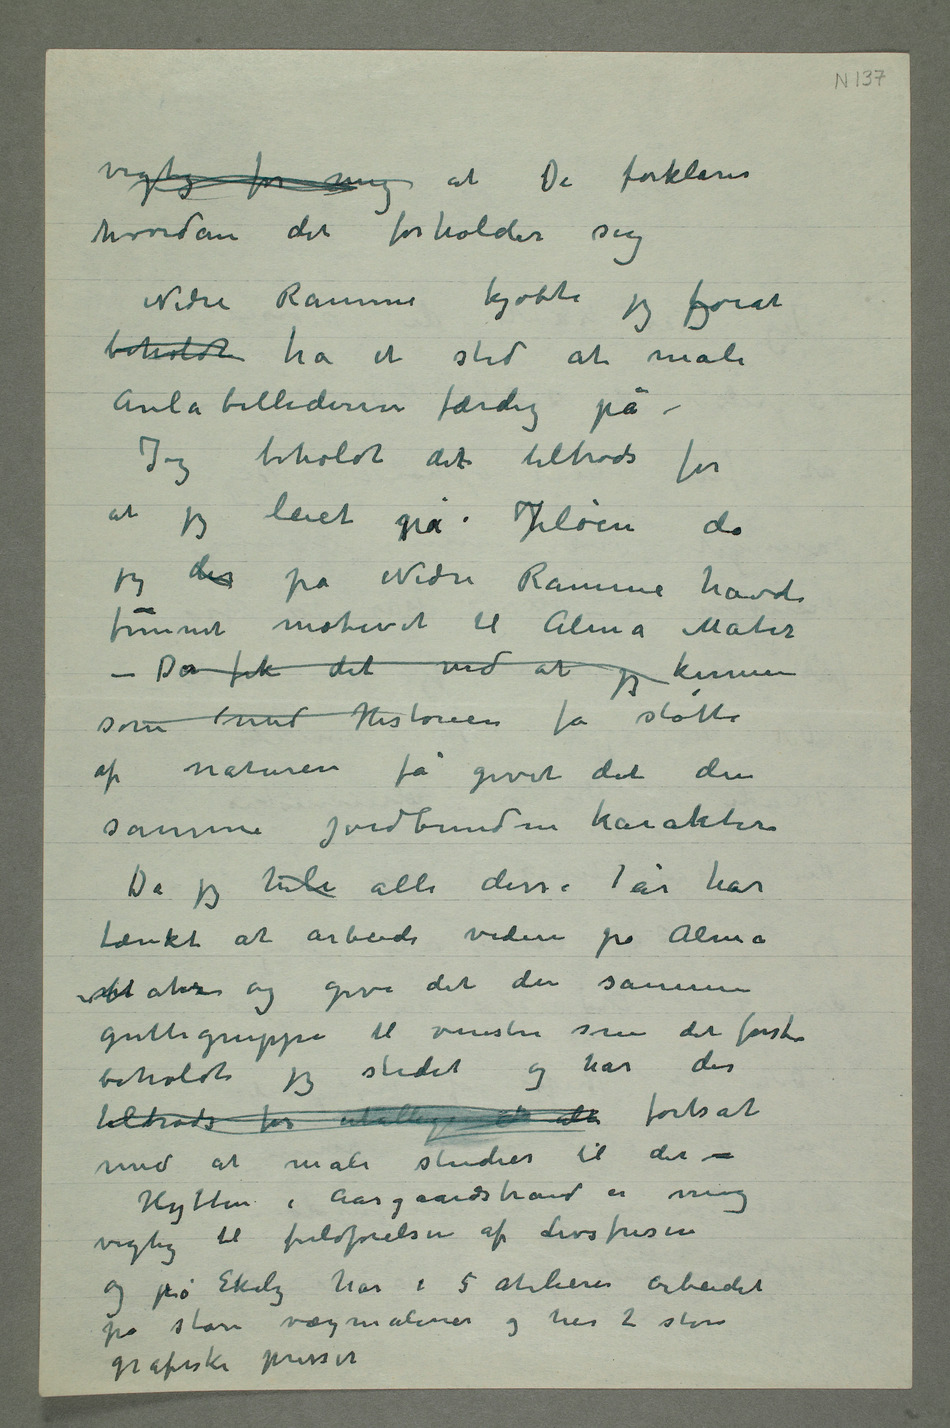 N 137
vigtig for mig at De forklarer
hvordan det forholder sig
Nedre Ramme kjøbte jeg forat
beholdt ha et sted at male
Aulabillederne færdig på –
Jeg beholdt det tiltrods for
at jeg leiet på Jeløen da
jeg der på Nedre Ramme havde
funnet motivet til Alma Mater
– Da fik det ved at jeg kunne
som med Historien få støtte
af naturen få givet det den
samme jordbundne karakter
Da jeg hele alle disse år har
tænkt at arbeide videre på Alma
Mater og give det den samme
guttegruppe til venstre som det første
beholdt jeg stedet og har der
tiltrods for alle fortsat
med at male studier til det –
Hytten i Aasgaardstrand er mig
vigtig til fuldførelsen af Livsfrisen
og på Ekely har i 5 atelierer arbeidet
på store vægmalerier og har 2 store
grafiske presser